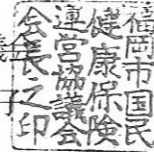 福岡市国民
健康保険
運営協議会
会長之印